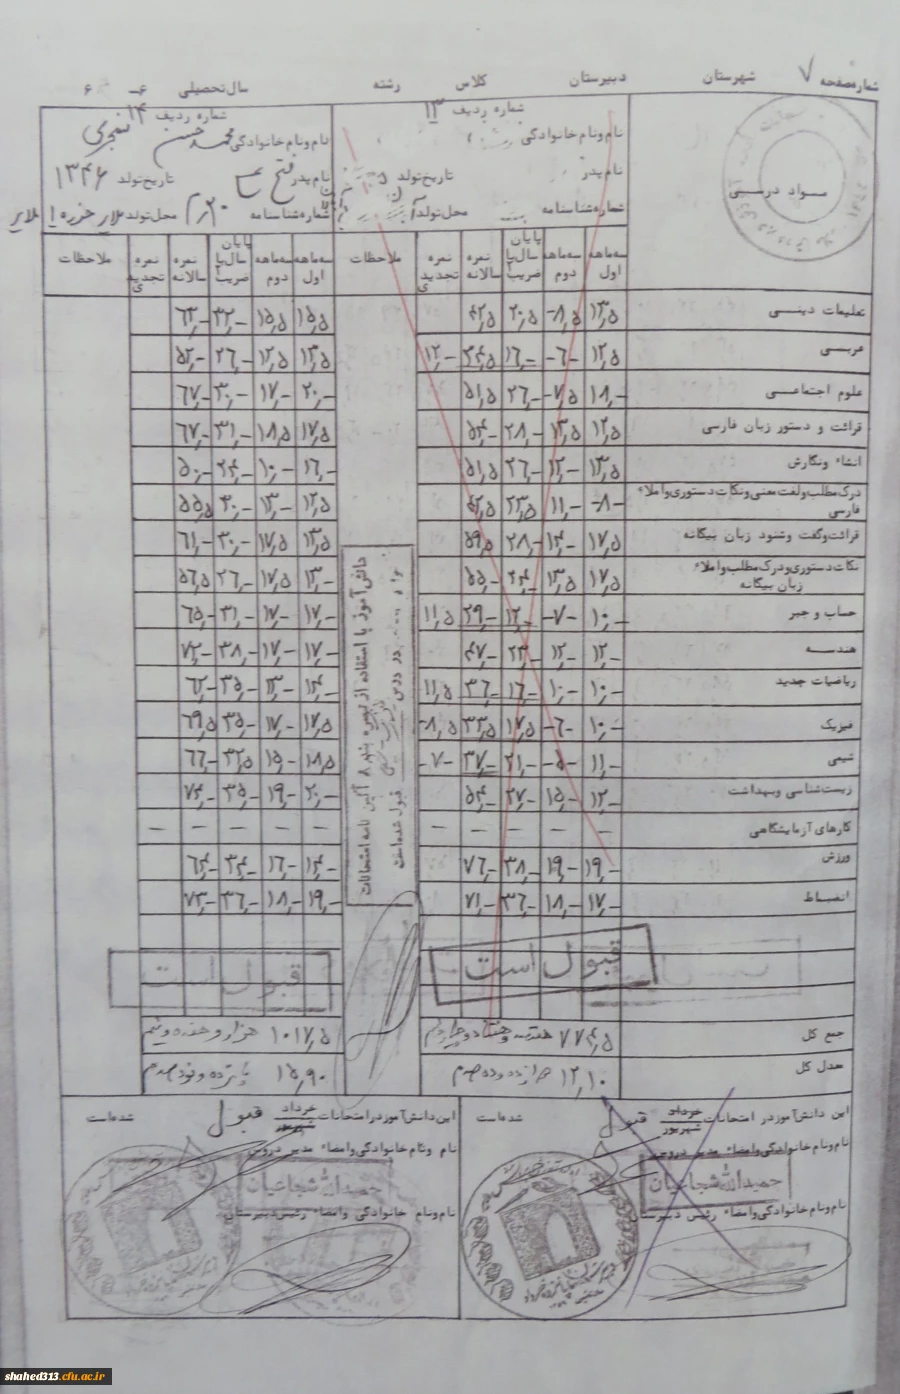 شماره صفحه ۷ شهرستان دبیرستان کلاس رشته سال تحصیلی ۶ـ ۶
شماره ردیف ۱۳
شماره ردیف ۱۴
سواد درسی
نام و نام خانوادگی
نام و نام خانوادگی محمد حسن
نام پدر تاریخ تولد
نام پدر فتح تاریخ تولد ۱۳۴۶
شماره شناسنامه محل تولد
شماره شناسنامه محل تولد ملایر
سه ماهه اول سه ماهه دوم پایان سال با ضریب نمره سالانه نمره تجدیدی ملاحظات سه ماهه اول سه ماهه دوم پایان سال با ضریب نمره سالانه نمره تجدیدی ملاحظات
تعلیمات دینی ۱۳,۵ ۸,۵- ۲۰,۵ ۴۲,۵ ۱۵,۵ ۱۵,۵ ۳۲,- ۶۳,-
عربی ۱۲,۵ ۶- ۱۶,- ۳۴,۵ ۱۲,- ۱۳,۵ ۱۲,۵ ۲۶,- ۵۲,-
علوم اجتماعی ۱۸,- ۷,۵- ۲۶,- ۵۱,۵ ۲۰,- ۱۷,- ۳۰,- ۶۷,-
قرائت و دستور زبان فارسی ۱۲,۵ ۱۳,۵ ۲۸,- ۵۴,- ۱۷,۵ ۱۸,۵ ۳۱,- ۶۷,-
انشاء و نگارش ۱۳,۵ ۱۲,- ۲۶,- ۵۱,۵ ۱۶,- ۱۰,- ۲۴,- ۵۰,-
درک مطلب و لغت معنی و نکات دستوری و املاء فارسی ۸- ۱۱,- ۲۳,۵ ۴۲,۵ ۱۲,۵ ۱۳,- ۳۰,- ۵۵,۵
قرائت و گفت و شنود زبان بیگانه ۱۷,۵ ۱۴,- ۲۸,- ۵۹,۵ ۱۳,۵ ۱۷,۵ ۳۰,- ۶۱,-
نکات دستوری و درک مطلب و املاء زبان بیگانه ۱۷,۵ ۱۳,۵ ۲۴,- ۵۵,- ۱۳,- ۱۷,۵ ۲۶,- ۵۶,۵
حساب و جبر ۱۰,- ۷- ۱۲,- ۲۹,- ۱۱,۵ ۱۷,- ۱۷,- ۳۱,- ۶۵,-
هندسه ۱۲,- ۱۲,- ۲۳,- ۴۷,- ۱۷,- ۱۷,- ۳۸,- ۷۲,-
ریاضیات جدید ۱۰,- ۱۰,- ۱۶,- ۳۶,- ۱۱,۵ ۱۴,- ۱۳,- ۳۵,- ۶۲,-
فیزیک ۱۰,- ۶- ۱۷,۵ ۳۳,۵ ۸,۵- ۱۷,۵ ۱۷,- ۳۵,- ۶۹,۵
شیمی ۱۱,- ۵- ۲۱,- ۳۷,- ۷- ۱۸,۵ ۱۵,- ۳۲,۵ ۶۶,-
زیست شناسی و بهداشت ۱۲,- ۱۵,- ۲۷,- ۵۴,- ۲۰,- ۱۹,- ۳۵,- ۷۴,-
کارهای آزمایشگاهی – – – – – – – – – –
ورزش ۱۹,- ۱۹,- ۳۸,- ۷۶,- ۱۴,- ۱۶,- ۳۴,- ۶۴,-
انضباط ۱۷,- ۱۸,- ۳۶,- ۷۱,- ۱۹,- ۱۸,- ۳۶,- ۷۳,-
دانش آموز با استفاده از تبصره بند ۸ آئین نامه امتحانات
در درس قبول شده است
قبول است
قبول است
جمع کل ۷۷۴,۵ ۱۰۱۷,۵ هزار و هفده و نیم
معدل کل ۱۲,۱۰ دوازده و ده صدم ۱۵,۹۰ پانزده و نود صدم
این دانش آموز در امتحانات خرداد شهریور قبول شده است
این دانش آموز در امتحانات خرداد شهریور قبول شده است
نام و نام خانوادگی و امضاء مدیر دروس
نام و نام خانوادگی و امضاء مدیر دروس
حمیدالله شجاعیان
حمیدالله شجاعیان
نام و نام خانوادگی و امضاء رئیس دبیرستان
نام و نام خانوادگی و امضاء رئیس دبیرستان
shahed313.cfu.ac.ir